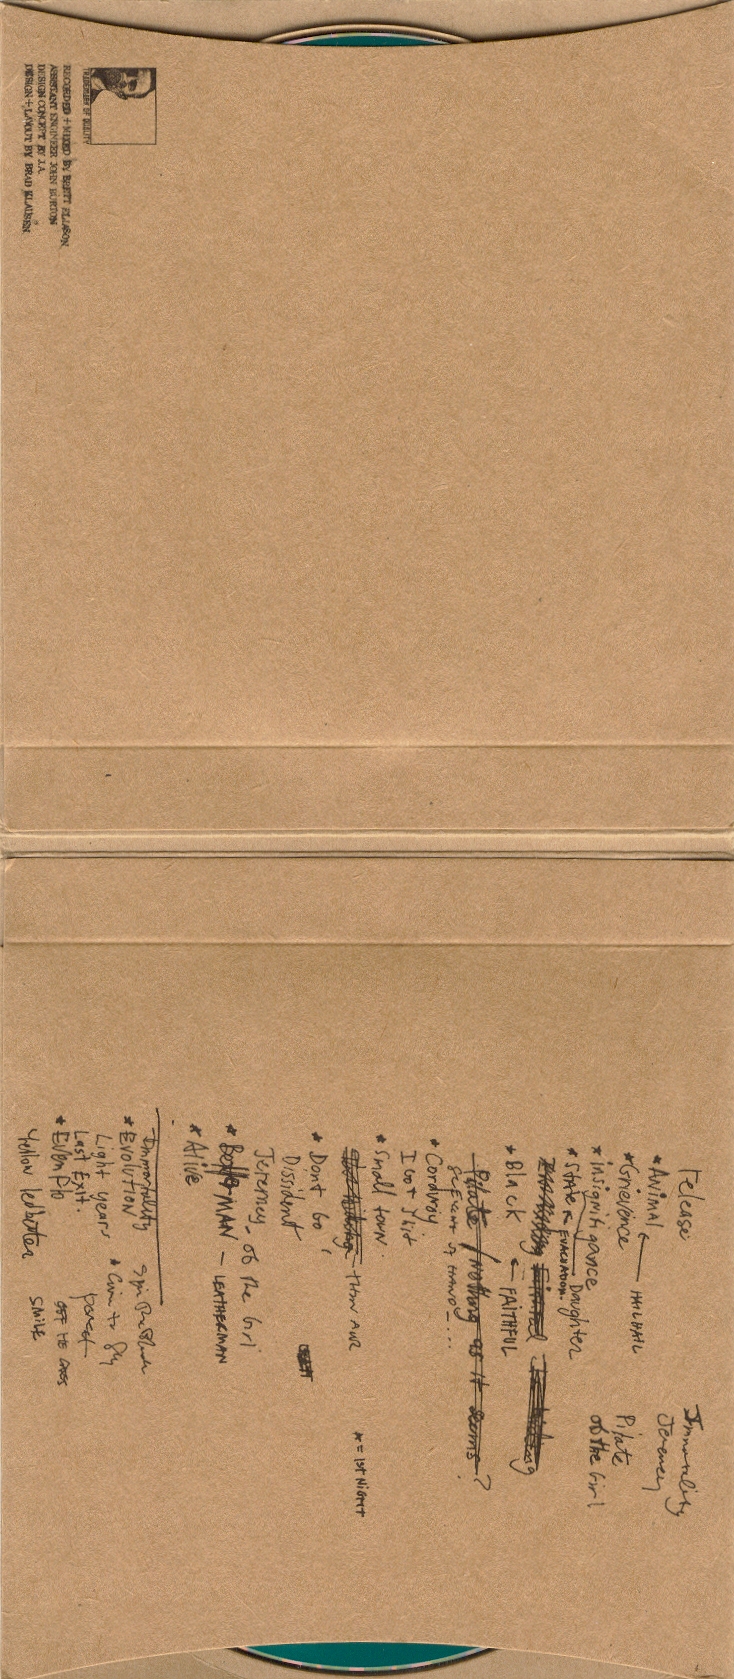 TRADEMARK OF QUALITY
RECORDED + MIXED BY BRETT ELIASON
ASSISTANT ENGINEER JOHN BURTON
DESIGN CONCEPT BY J.A.
DESIGN + LAYOUT BY BRAD KLAUSEN
release
* ANIMAL
HAIL HAIL
* Grievance
* insignificance
Daughter
* State
EVACUATION.
* Black
FAITHFUL
Pilate / nothing as it seems?
SLEIGHT of HAND ....
* Corduroy
I Got Shit
* Small town.
THIN AIR
* Dont Go
Dissident
Jeremy - of the Girl
* MAN - LEATHERMAN
* Alive
Immortality
Jeremey
Pilate
of the Girl
* = 1ST NIGHT
Immortality
* EVOLUTION
Light years
* Given to Fly
Last Exit.
* Even Flo
OFF HE GOES
Yellow ledbetter
SMILE